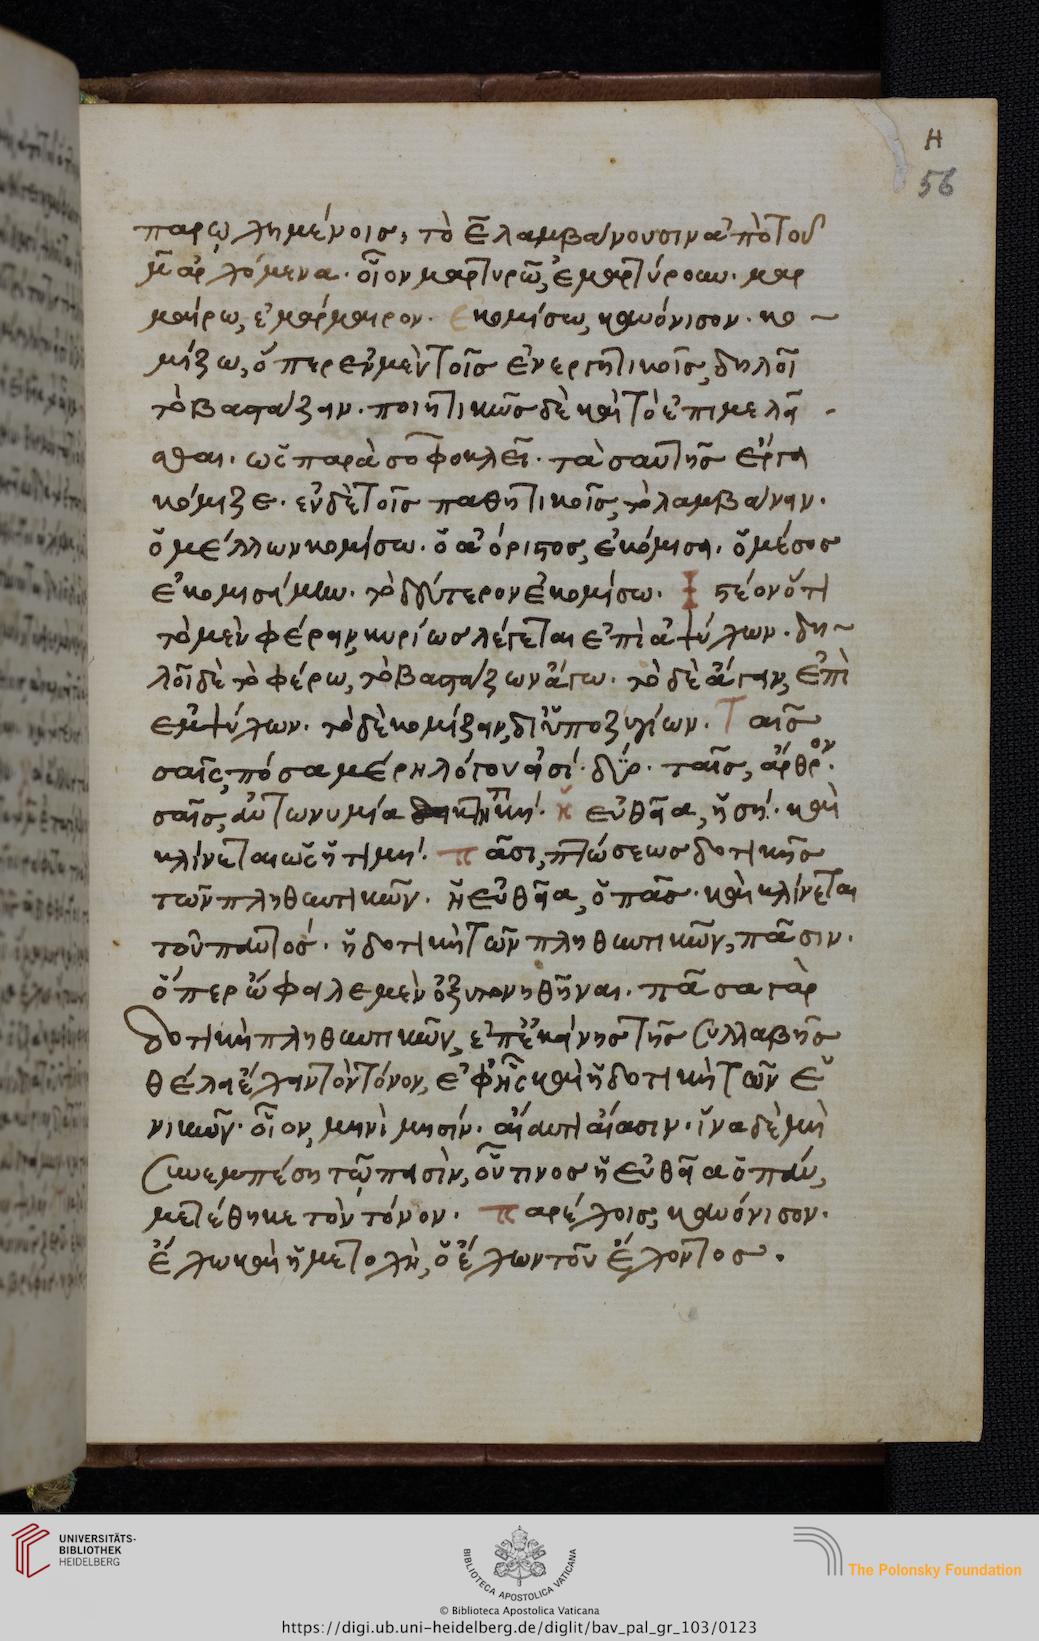 η
56
παρῳχημένοις, τὸ ε λαμβάνουσιν ἀπὸ τοῦ
μ ἀρχόμενα. οἷον μαρτυρῶ, ἐμαρτύρουν. μαρ
μαίρω, ἐμάρμαιρον. Ἐκομίσω, κανόνισον. κο ~
μίζω, ὅπερ ἐν μὲν τοῖς ἐνεργητικοῖς, δηλοῖ
τὸ βαστάζειν. ποιητικῶς δὲ καὶ τὸ ἐπιμελεῖ -
σθαι. ὡς παρὰ σοφοκλεῖ. τὰ σαυτῆς ἔργα
κόμιζε. ἐν δὲ τοῖς παθητικοῖς, τὸ λαμβάνειν.
ὁ μέλλων κομίσω. ὁ ἀόριστος, ἐκόμισα. ὁ μέσος
ἐκομισάμην. τὸ δεύτερον ἐκομίσω. Ἰστέον ὅτι
τὸ μὲν φέρειν, κυρίως λέγεται ἐπὶ ἀψύχων. δη ~
λοῖ δὲ τὸ φέρω, τὸ βαστάζων ἄγω. τὸ δὲ ἄγειν, ἐπὶ
ἐμψύχων. τὸ δὲ κομίζειν, δι' ὑποζυγίων. Ταῖς
σαῖς, πόσα μέρη λόγου εἰσί. δύο. ταῖς, ἄρθρον.
σαῖς, ἀντωνυμία κτητική. ἧς εὐθεῖα, ἡ σή. καὶ
κλίνεται ὡς ἡ τιμή. πᾶσι, πτώσεως δοτικῆς
τῶν πληθυντικῶν. ἧς εὐθεῖα, ὁ πᾶς. καὶ κλίνεται
τοῦ παντός. ἡ δοτικὴ τῶν πληθυντικῶν, πᾶσιν.
ὅπερ ὤφειλε μὲν ὀξυτονηθῆναι. πᾶσα γὰρ
δοτικὴ πληθυντικῶν, ἐπ' ἐκείνης τῆς συλλαβῆς
θέλει ἔχειν τὸν τόνον, ἐφ' ἧς καὶ ἡ δοτικὴ τῶν ἑ
νικῶν. οἷον, μηνὶ μησίν. αἴαντι αἴασιν. ἵνα δὲ μὴ
συνεμπέσῃ τῷ πασὶν, οὗτινος ἡ εὐθεῖα ὁ πάν,
μετέθηκε τὸν τόνον. παρέχοις, κανόνισον.
ἔχω καὶ ἡ μετοχὴ, ὁ ἔχων τοῦ ἔχοντος.
UNIVERSITÄTS-
BIBLIOTHEK
HEIDELBERG
BIBLIOTECA APOSTOLICA VATICANA
The Polonsky Foundation
© Biblioteca Apostolica Vaticana
https://digi.ub.uni-heidelberg.de/diglit/bav_pal_gr_103/0123